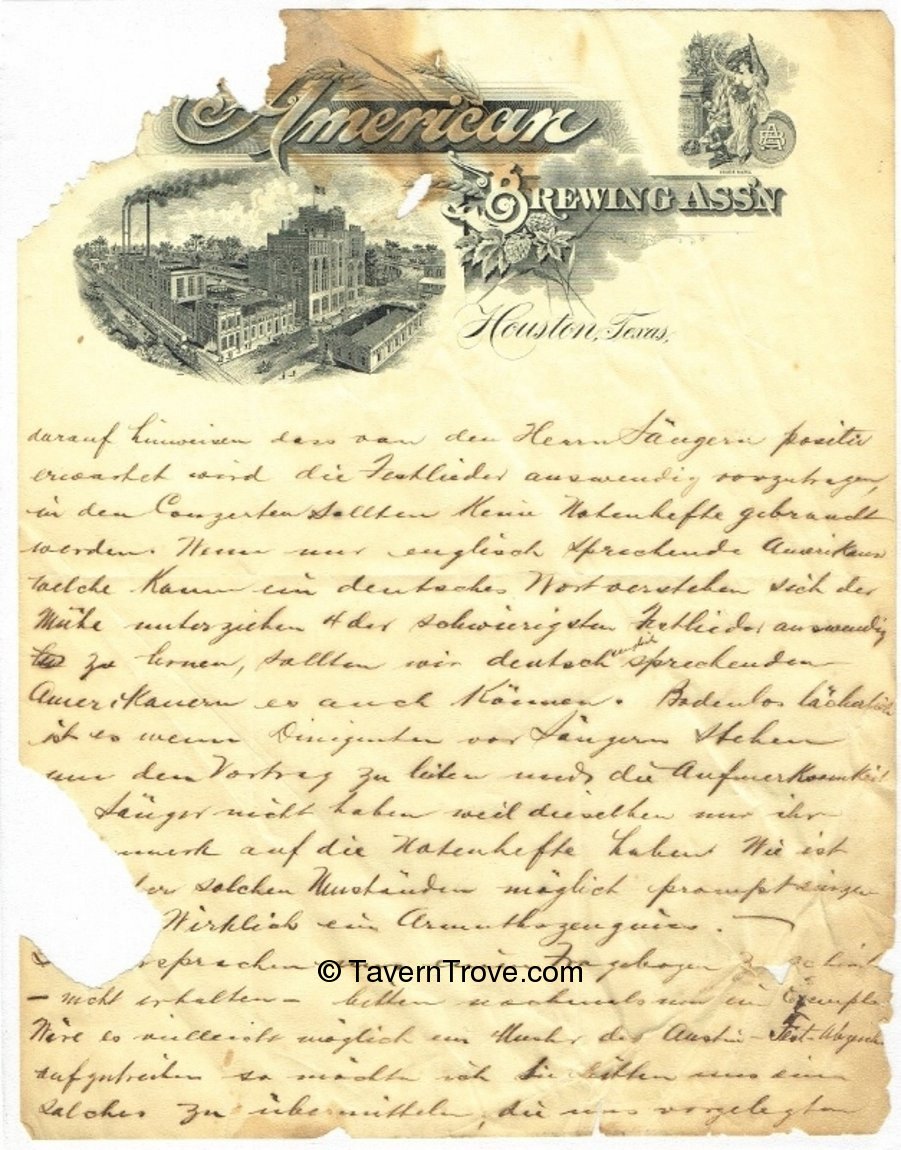 American
Brewing Ass'n
Houston, Texas,
darauf hinweisen dass von den Herrn Sängern positiv
erwartet wird die Festlieder auswendig vorzutragen,
in den Conzerten sollten keine Notenhefte gebraucht
werden. Wenn nur englisch sprechende Amerikaner
welche kaum ein deutsches Wort verstehen sich der
Mühe unterziehen 4 der schwierigsten Festlieder auswendig
zu lernen, sollten wir deutsch sprechenden
Amerikanern es auch können. Bodenlos lächerlich
ist es wenn Dirigenten vor Sängern stehen
um den Vortrag zu leiten und die Aufmerksamkeit
Sänger nicht haben weil dieselben nur ihr
nmerk auf die Notenhefte haben. Wie ist
ter solchen Umständen möglich prompt singen
Wirklich ein Armuthszeugniss. —
rsprachen Fragebogen zu schick
— nicht erhalten — bitten nochmals um ein Exempla
Wäre es vielleicht möglich ein Muster der Austin-Fest-Abzeichen
aufzutreiben so möchte ich Sie bitten uns ein
solches zu übermitteln, die uns vorgelegten
© TavernTrove.com